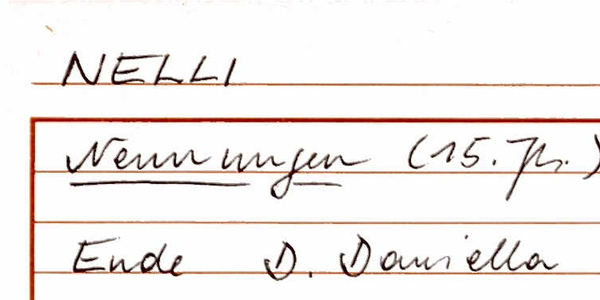 NELLI
Nennungen (15. Jh.)
Ende D. Daniella